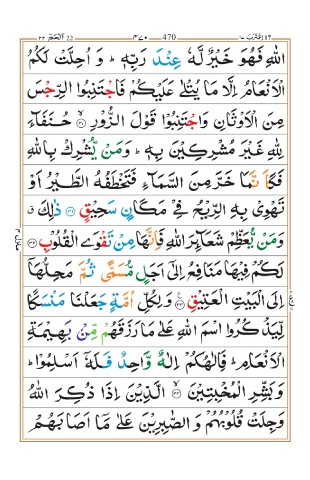 ٢٢ اَلْحَجّ 22 ٤٧٠ 470 اِقْتَرَبَ ١٧
اللّٰهِ فَهُوَ خَيْرٌ لَّهٗ عِنْدَ رَبِّهٖ ؕ وَ اُحِلَّتْ لَكُمُ
الْاَنْعَامُ اِلَّا مَا يُتْلٰى عَلَيْكُمْ فَاجْتَنِبُوا الرِّجْسَ
مِنَ الْاَوْثَانِ وَاجْتَنِبُوْا قَوْلَ الزُّوْرِ ۙ‏﴿۳۰﴾ حُنَفَآءَ
لِلّٰهِ غَيْرَ مُشْرِكِيْنَ بِهٖ ؕ وَمَنْ يُّشْرِكْ بِاللّٰهِ
فَكَاَنَّمَا خَرَّ مِنَ السَّمَآءِ فَتَخْطَفُهُ الطَّيْرُ اَوْ
تَهْوِىْ بِهِ الرِّيْحُ فِىْ مَكَانٍ سَحِيْقٍ ﴿۳۱﴾ ذٰلِكَ ۗ
وَمَنْ يُّعَظِّمْ شَعَآٮِٕرَ اللّٰهِ فَاِنَّهَا مِنْ تَقْوَى الْقُلُوْبِ ﴿۳۲﴾
لَكُمْ فِيْهَا مَنَافِعُ اِلٰٓى اَجَلٍ مُّسَمًّى ثُمَّ مَحِلُّهَاۤ
اِلَى الْبَيْتِ الْعَتِيْقِ ﴿۳۳﴾ وَلِكُلِّ اُمَّةٍ جَعَلْنَا مَنْسَكًا
لِّيَذْكُرُوا اسْمَ اللّٰهِ عَلٰى مَا رَزَقَهُمْ مِّنْۢ بَهِيْمَةِ
الْاَنْعَامِ ؕ فَاِلٰهُكُمْ اِلٰهٌ وَّاحِدٌ فَلَهٗۤ اَسْلِمُوْا ؕ
وَبَشِّرِ الْمُخْبِتِيْنَ ۙ‏﴿۳۴﴾ الَّذِيْنَ اِذَا ذُكِرَ اللّٰهُ
وَجِلَتْ قُلُوْبُهُمْ وَالصّٰبِرِيْنَ عَلٰى مَاۤ اَصَابَهُمْ